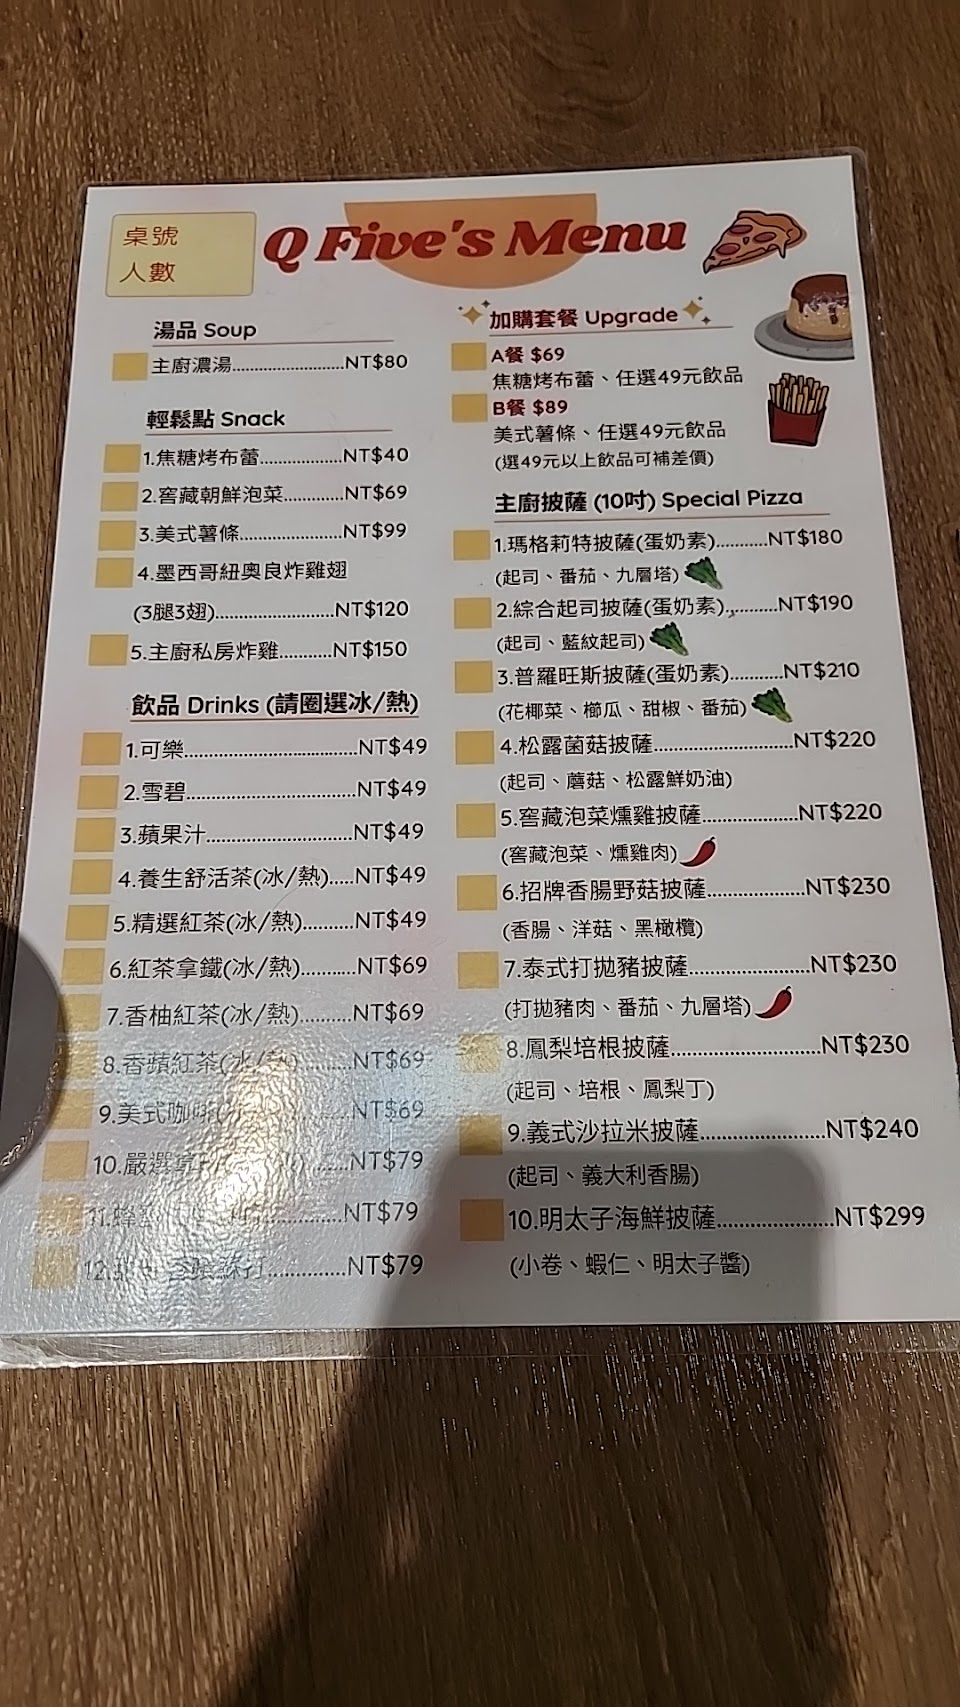 桌號
人數
Q Five's Menu
湯品 Soup
主廚濃湯..........................NT$80
輕鬆點 Snack
1.焦糖烤布蕾...................NT$40
2.窖藏朝鮮泡菜..............NT$69
3.美式薯條........................NT$99
4.墨西哥紐奧良炸雞翅
(3腿3翅)...........................NT$120
5.主廚私房炸雞............NT$150
飲品 Drinks (請圈選冰/熱)
1.可樂........................................NT$49
2.雪碧.......................................NT$49
3.蘋果汁..................................NT$49
4.養生舒活茶(冰/熱).....NT$49
5.精選紅茶(冰/熱)...........NT$49
6.紅茶拿鐵(冰/熱)...........NT$69
7.香柚紅茶(冰/熱)...........NT$69
8.香蘋紅茶(冰/熱) NT$69
9.美式咖啡 NT$69
10.嚴選 ......NT$79
11.蜂 ...................NT$79
12. ..............NT$79
加購套餐 Upgrade
A餐 $69
焦糖烤布蕾、任選49元飲品
B餐 $89
美式薯條、任選49元飲品
(選49元以上飲品可補差價)
主廚披薩 (10吋) Special Pizza
1.瑪格莉特披薩(蛋奶素)..........NT$180
(起司、番茄、九層塔)
2.綜合起司披薩(蛋奶素)..........NT$190
(起司、藍紋起司)
3.普羅旺斯披薩(蛋奶素)...........NT$210
(花椰菜、櫛瓜、甜椒、番茄)
4.松露菌菇披薩............................NT$220
(起司、蘑菇、松露鮮奶油)
5.窖藏泡菜燻雞披薩...................NT$220
(窖藏泡菜、燻雞肉)
6.招牌香腸野菇披薩...................NT$230
(香腸、洋菇、黑橄欖)
7.泰式打拋豬披薩.......................NT$230
(打拋豬肉、番茄、九層塔)
8.鳳梨培根披薩............................NT$230
(起司、培根、鳳梨丁)
9.義式沙拉米披薩.......................NT$240
(起司、義大利香腸)
10.明太子海鮮披薩.....................NT$299
(小卷、蝦仁、明太子醬)